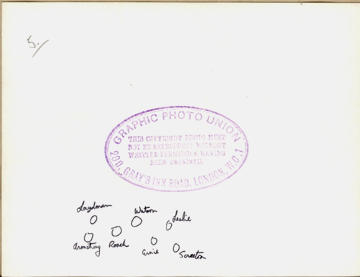 5/-
GRAPHIC PHOTO UNION
THIS COPYRIGHT PHOTO MUST
NOT BE REPRODUCED WITHOUT
WRITTEN PERMISSION HAVING
BEEN OBTAINED
200, GRAY'S INN ROAD, LONDON, W.C.1
Watson
Leslie
Armstrong Roach